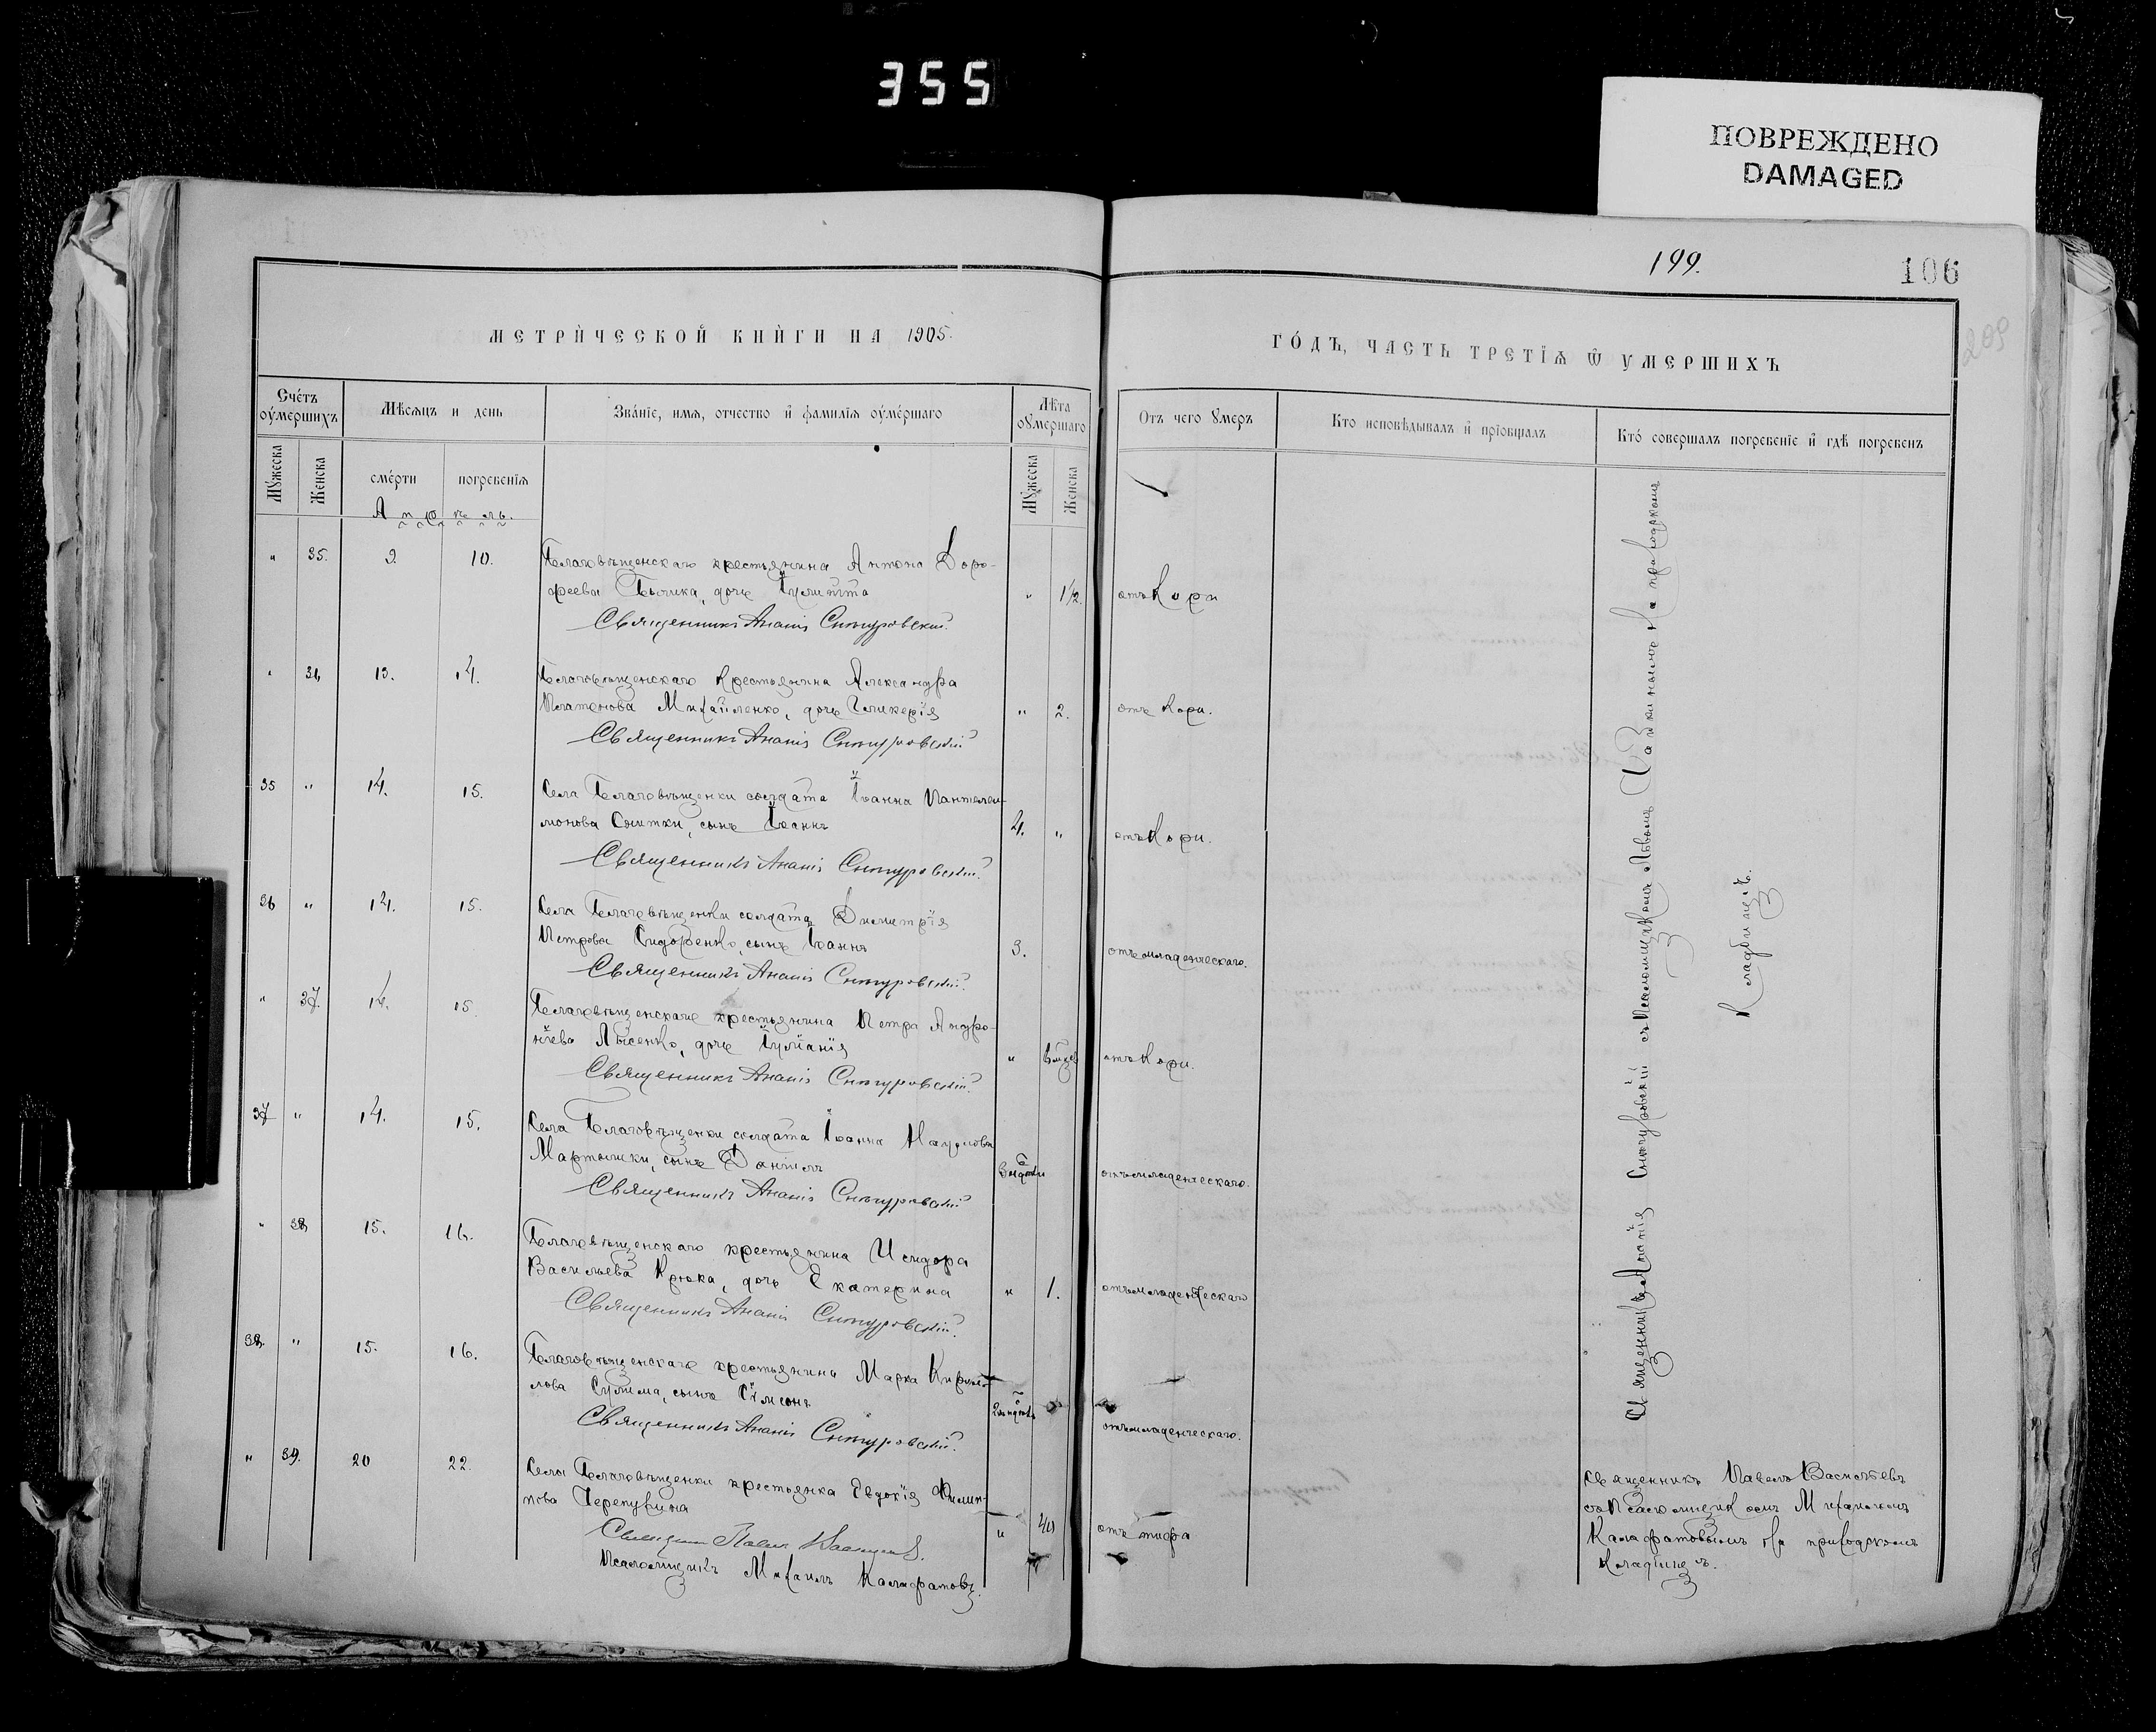 355
ПОВРЕЖДЕНО
DAMAGED
199.
106
209
МЕТРИЧЕСКОЙ КНИГИ НА 1905.
ГОДЪ, ЧАСТЬ ТРЕТІЯ Ѿ УМЕРШИХЪ
Счетъ оумершихъ
Мѣсяцъ и день
Званіе, имя, отчество и фамилія оумершаго
Лѣта оумершаго
Отъ чего умеръ
Кто исповѣдывалъ и пріобщалъ
Кто совершалъ погребеніе и гдѣ погребенъ
Мужеска
Женска
смерти
погребенія
Мужеска
Женска
Апрѣль.
" 35. 9. 10. Благовѣщенскаго крестьянина Антона Доро-
феева Бычика, дочь Іулитта " 1 1/2. отъ кори
Священникъ Ананій Снѣгуровскій
" 36 13. 14. Благовѣщенскаго крестьянина Александра
Платонова Михайленко, дочь Гликерія " 2. отъ кори.
Священникъ Ананій Снѣгуровскій
35 " 14. 15. Села Благовѣщенки солдата Іоанна Пантелеи-
монова Снитки, сынъ Іоаннъ 4. " отъ кори.
Священникъ Ананій Снѣгуровскій
36 " 14. 15. Села Благовѣщенки солдата Димитрія
Петрова Сидоренко, сынъ Іоаннъ 3. отъ младенческаго.
Священникъ Ананій Снѣгуровскій
" 37. 14. 15. Благовѣщенскаго крестьянина Петра Андро-
ніева Лысенко, дочь Іуліанія " отъ кори.
Священникъ Ананій Снѣгуровскій
37 " 14. 15. Села Благовѣщенки солдата Іоанна Наумова
Мартышки, сынъ Даніилъ отъ младенческаго.
Священникъ Ананій Снѣгуровскій
" 38 15. 16. Благовѣщенскаго крестьянина Исидора
Васильева Крюка, дочь Екатерина " 1. отъ младенческаго
Священникъ Ананій Снѣгуровскій
38. " 15. 16. Благовѣщенскаго крестьянина Марка Кирил-
лова Сулима, сынъ Сѵмеонъ отъ младенческаго.
Священникъ Ананій Снѣгуровскій.
" 39. 20 22. Села Благовѣщенки крестьянка Евдокія Филип-
пова Черепухина " 40 отъ тифа
Священникъ Павелъ Васильевъ.
Псаломщикъ Михаилъ Калафатовъ.
Священникъ Ананій Снѣгуровскій съ псаломщикомъ Львомъ на приходскомъ
кладбищѣ.
Священникъ Павелъ Васильевъ
съ псаломщикомъ Михаиломъ
Калафатовымъ на приходскомъ
кладбищѣ.